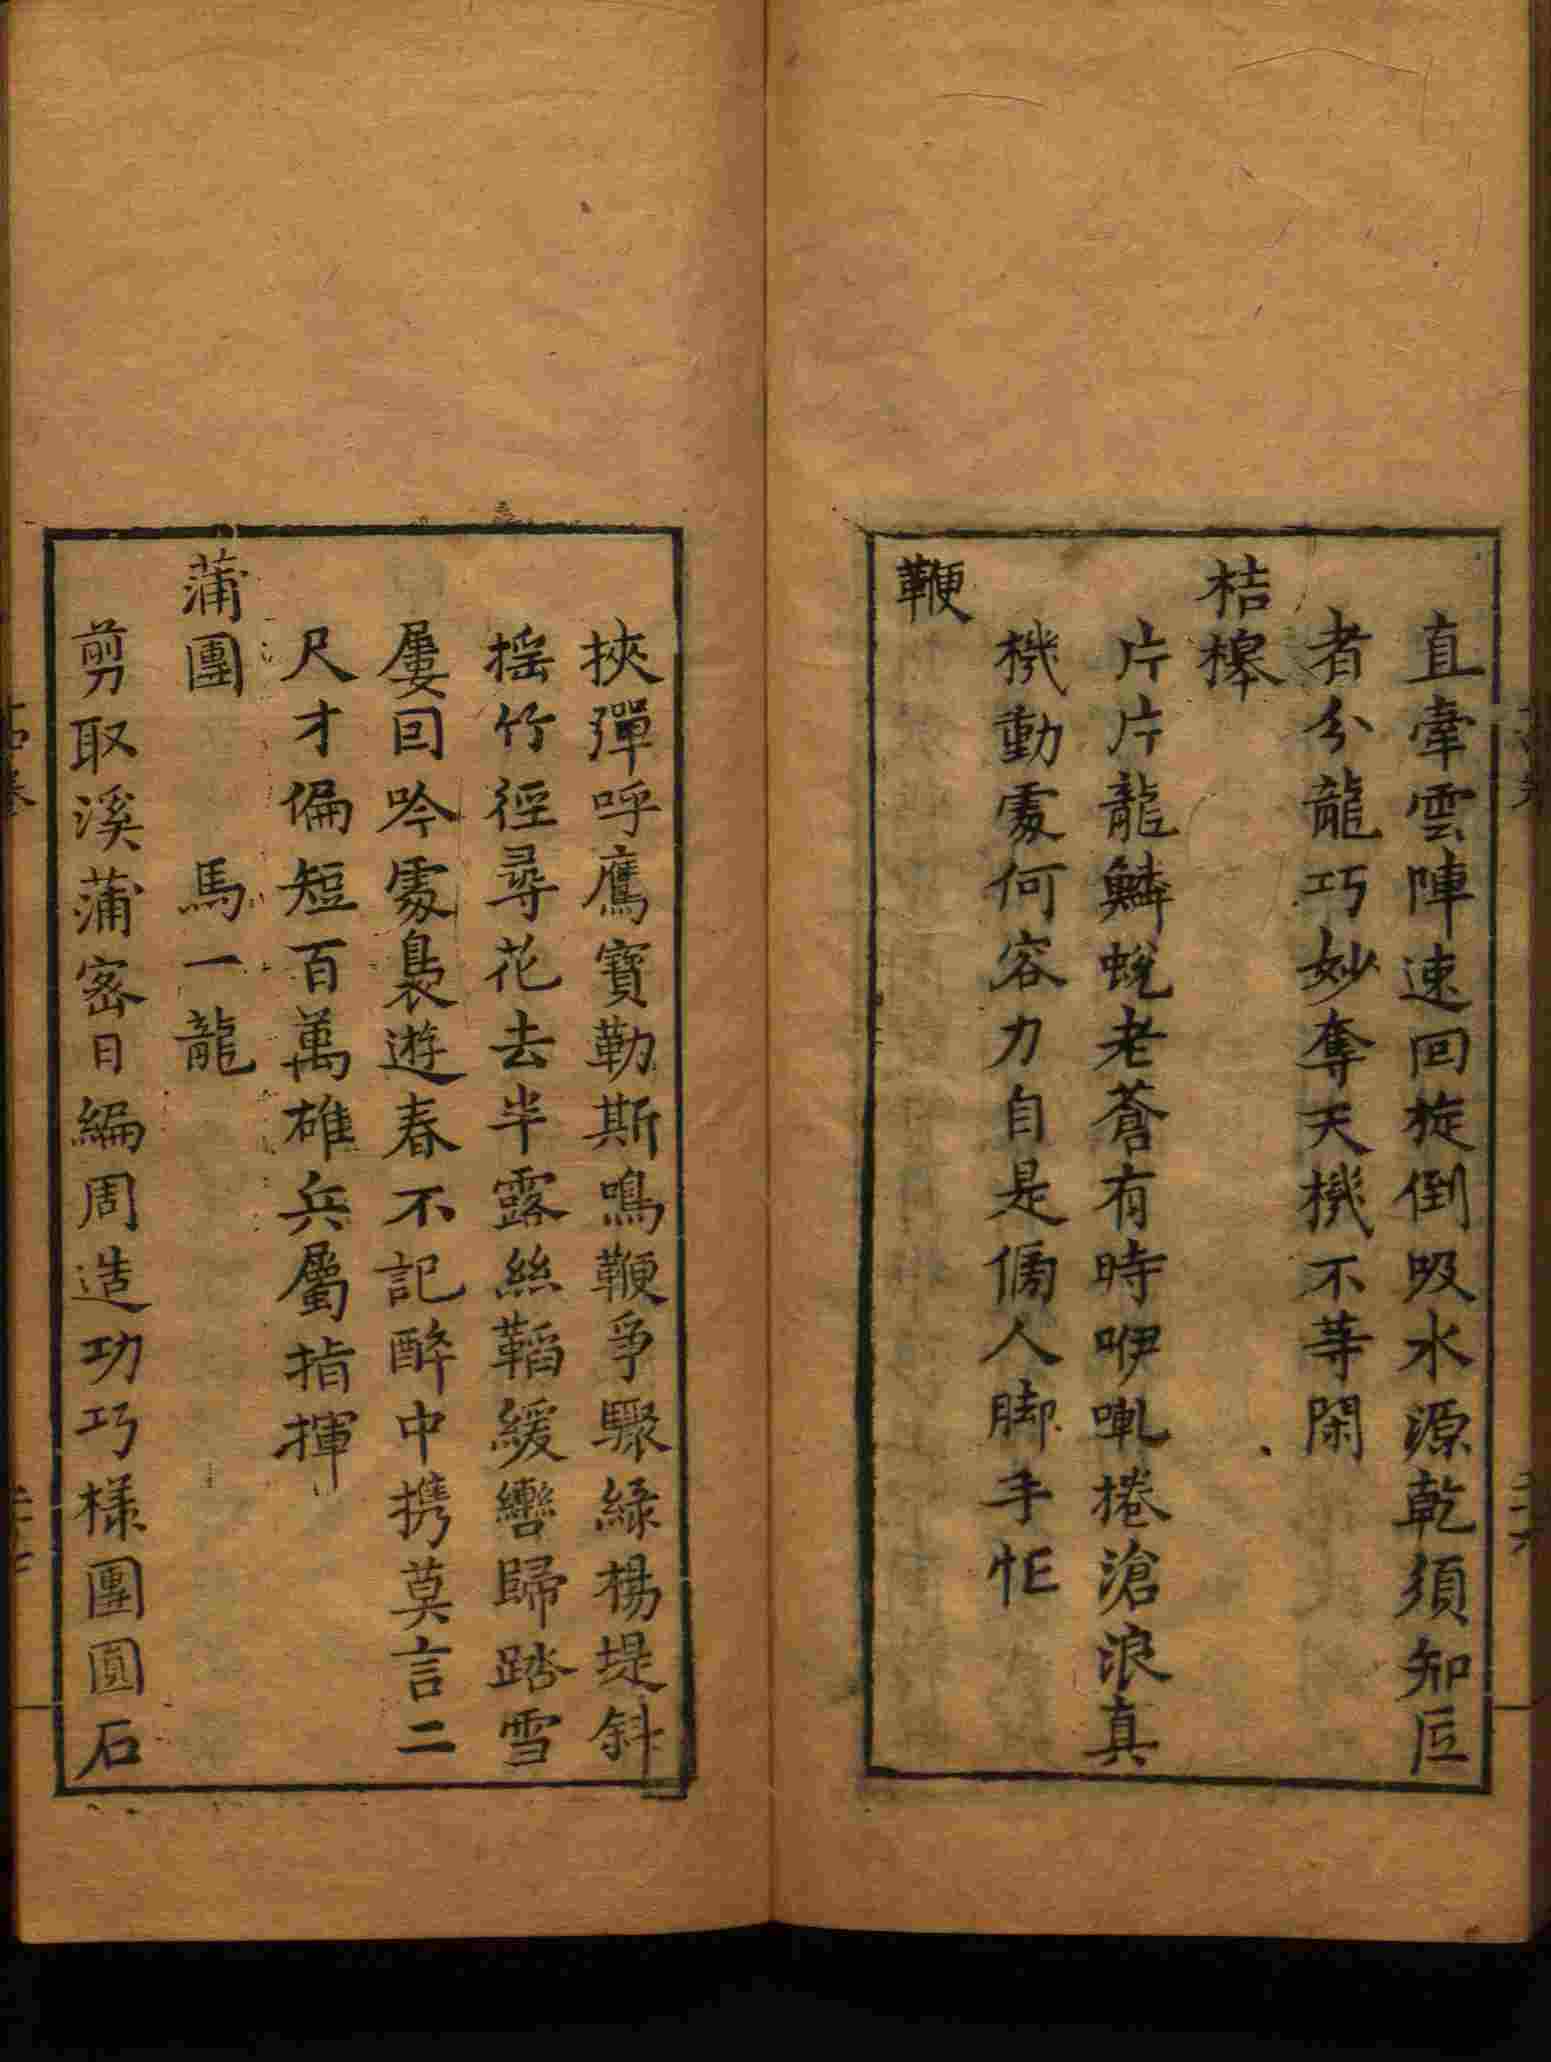 直牽雲陣速回旋倒吸水源乾須知匠
者分龍巧妙奪天機不等閑
桔槹
片片龍鱗蛻老蒼有時咿軋捲滄浪真
機動處何容力自是傍人脚手忙
鞭
挾彈呼鷹寶勒斯鳴鞭爭驟綠楊堤斜
揺竹徑尋花去半露絲鞱緩轡歸踏雪
屢回吟處裊遊春不記醉中携莫言二
尺才偏短百萬雄兵屬指揮
蒲團　馬一龍
剪取溪蒲宻日編周造功巧様團圓石